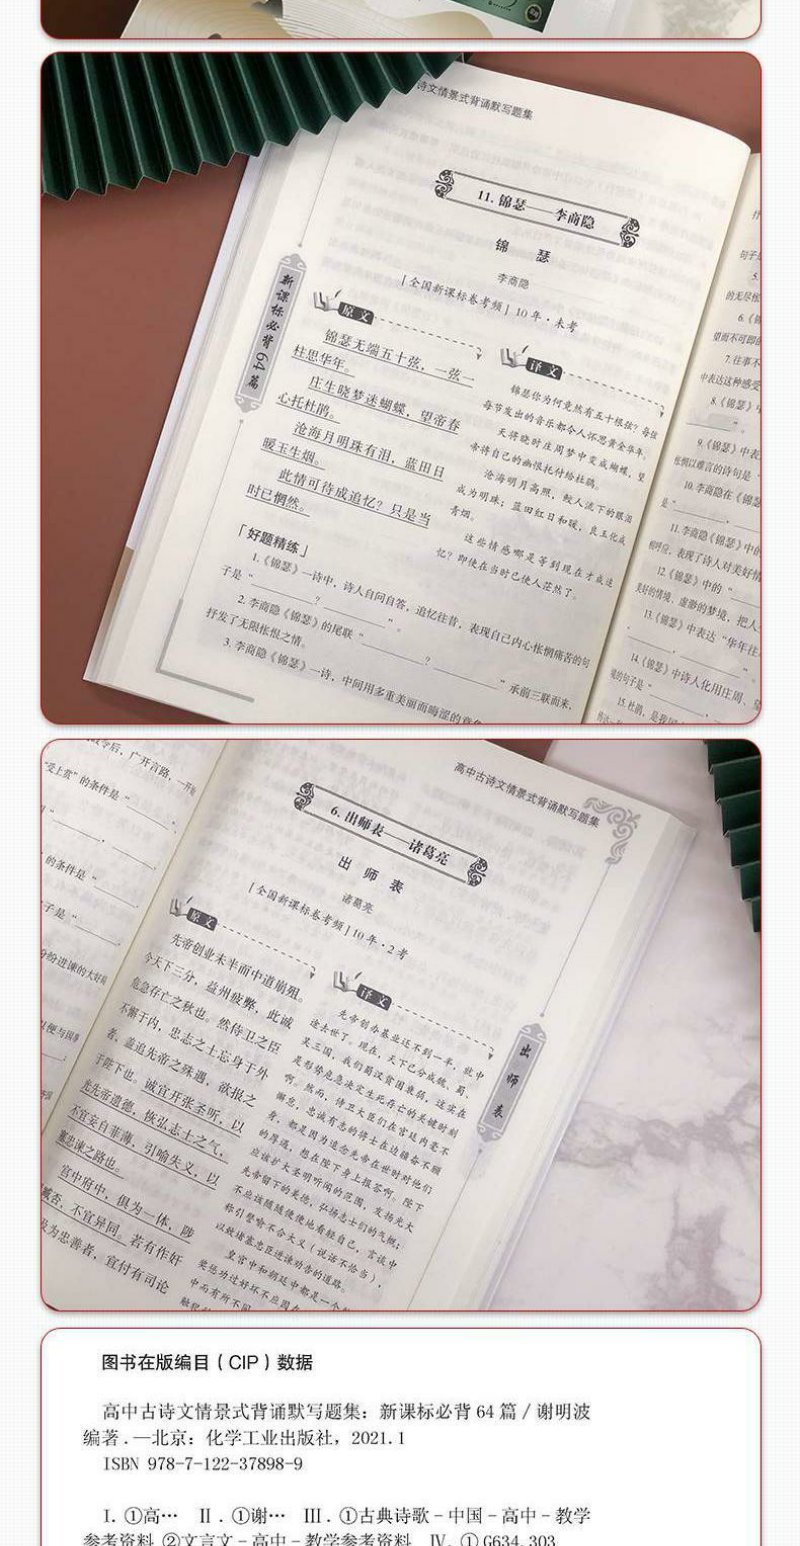 诗文情景式背诵默写题集
11. 锦瑟——李商隐
锦 瑟
李商隐
「全国新课标卷考频」10年·未考
新课标必背64篇
原文
锦瑟无端五十弦，一弦一
柱思华年。
庄生晓梦迷蝴蝶，望帝春
心托杜鹃。
沧海月明珠有泪，蓝田日
暖玉生烟。
此情可待成追忆？只是当
时已惘然。
译文
锦瑟你为何竟然有五十根弦？每弦
每节发出的音乐都令人怀思黄金华年。
天将晓时庄周梦中变成蝴蝶，望
帝将自己的幽恨托付给杜鹃。
沧海明月高照，鲛人流下的眼泪
成为明珠；蓝田红日和暖，良玉化成
青烟。
这些情感哪是等到现在才成追
忆？即使在当时已使人茫然了。
「好题精练」
1.《锦瑟》一诗中，诗人自问自答，追忆往昔，表现自己内心怅惘痛苦的句
子是“ ？ ”。
2. 李商隐《锦瑟》的尾联“ ？ ”承前三联而来，
抒发了无限怅恨之情。
3. 李商隐《锦瑟》一诗，中间用多重美丽而晦涩的意
句子
5.
的无尽
6.《锦
望而不可即的
7. 往事不
中表达这种感受
8.《锦瑟》
9.《锦瑟》中表
怅惘以难言的诗句是“
10. 李商隐在《锦瑟
是“
11. 李商隐《锦瑟》中的
相呼应，表现了诗人对美好情
12.《锦瑟》中的“
美好的情境、虚渺的梦境，把人
13.《锦瑟》中表达“华年往
14.《锦瑟》中诗人化用庄周、望
境的句子是“
15. 杜鹃，是我
令后，广开言路，一开始
“受上赏”的条件是“ ”。
的条件是“
子是“
纷纷进谏的大好局
高中古诗文情景式背诵默写题集
6. 出师表——诸葛亮
出 师 表
诸葛亮
「全国新课标卷考频」10年·2考
原文
先帝创业未半而中道崩殂。
今天下三分，益州疲弊，此诚
危急存亡之秋也。然侍卫之臣
不懈于内，忠志之士忘身于外
者，盖追先帝之殊遇，欲报之
于陛下也。诚宜开张圣听，以
光先帝遗德，恢弘志士之气，
不宜妄自菲薄，引喻失义，以
塞忠谏之路也。
宫中府中，俱为一体，陟
臧否，不宜异同。若有作奸
及为忠善者，宜付有司论
译文
先帝创办基业还不到一半，就中
途去世了。现在，天下已分成魏、蜀、
吴三国，我们蜀汉贫困衰弱，这实在
是形势危急决定生死存亡的关键时刻
啊。然而，侍卫大臣们在宫廷内毫不
懈怠，忠诚有志的将士在边疆奋不顾
身，都是因为追念先帝在世时对他们
的厚遇，想在陛下身上报答啊。陛下
应该扩大圣明听闻的范围，发扬光大
先帝留下的美德，弘扬志士们的气概；
不应该随随便便地看轻自己，言谈中
称引譬喻不合大义（说话不恰当），
以致堵塞忠臣进谏劝告的道路。
皇宫中和朝廷中都是一个
奖惩功过好坏不应因在
中而有所不同
出师表
图书在版编目（CIP）数据
高中古诗文情景式背诵默写题集：新课标必背 64 篇 / 谢明波
编著 . —北京：化学工业出版社，2021.1
ISBN 978-7-122-37898-9
Ⅰ. ①高… Ⅱ . ①谢… Ⅲ . ①古典诗歌 – 中国 – 高中 – 教学
参考资料 ②文言文 – 高中 – 教学参考资料 Ⅳ. ① G634.303